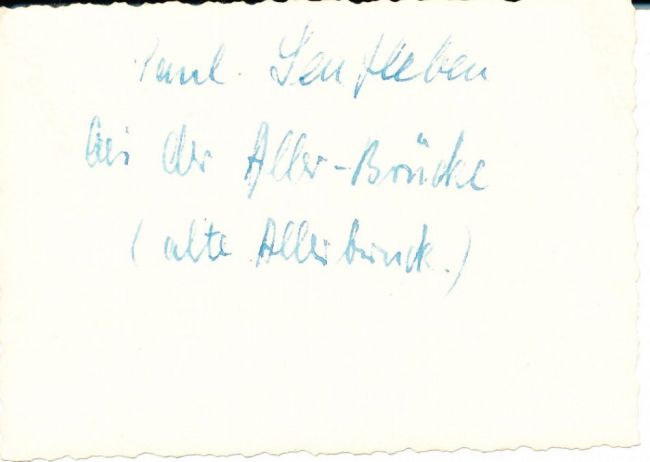 Paul Senftleben
bei der Aller-Brücke
(alte Allerbrück.)